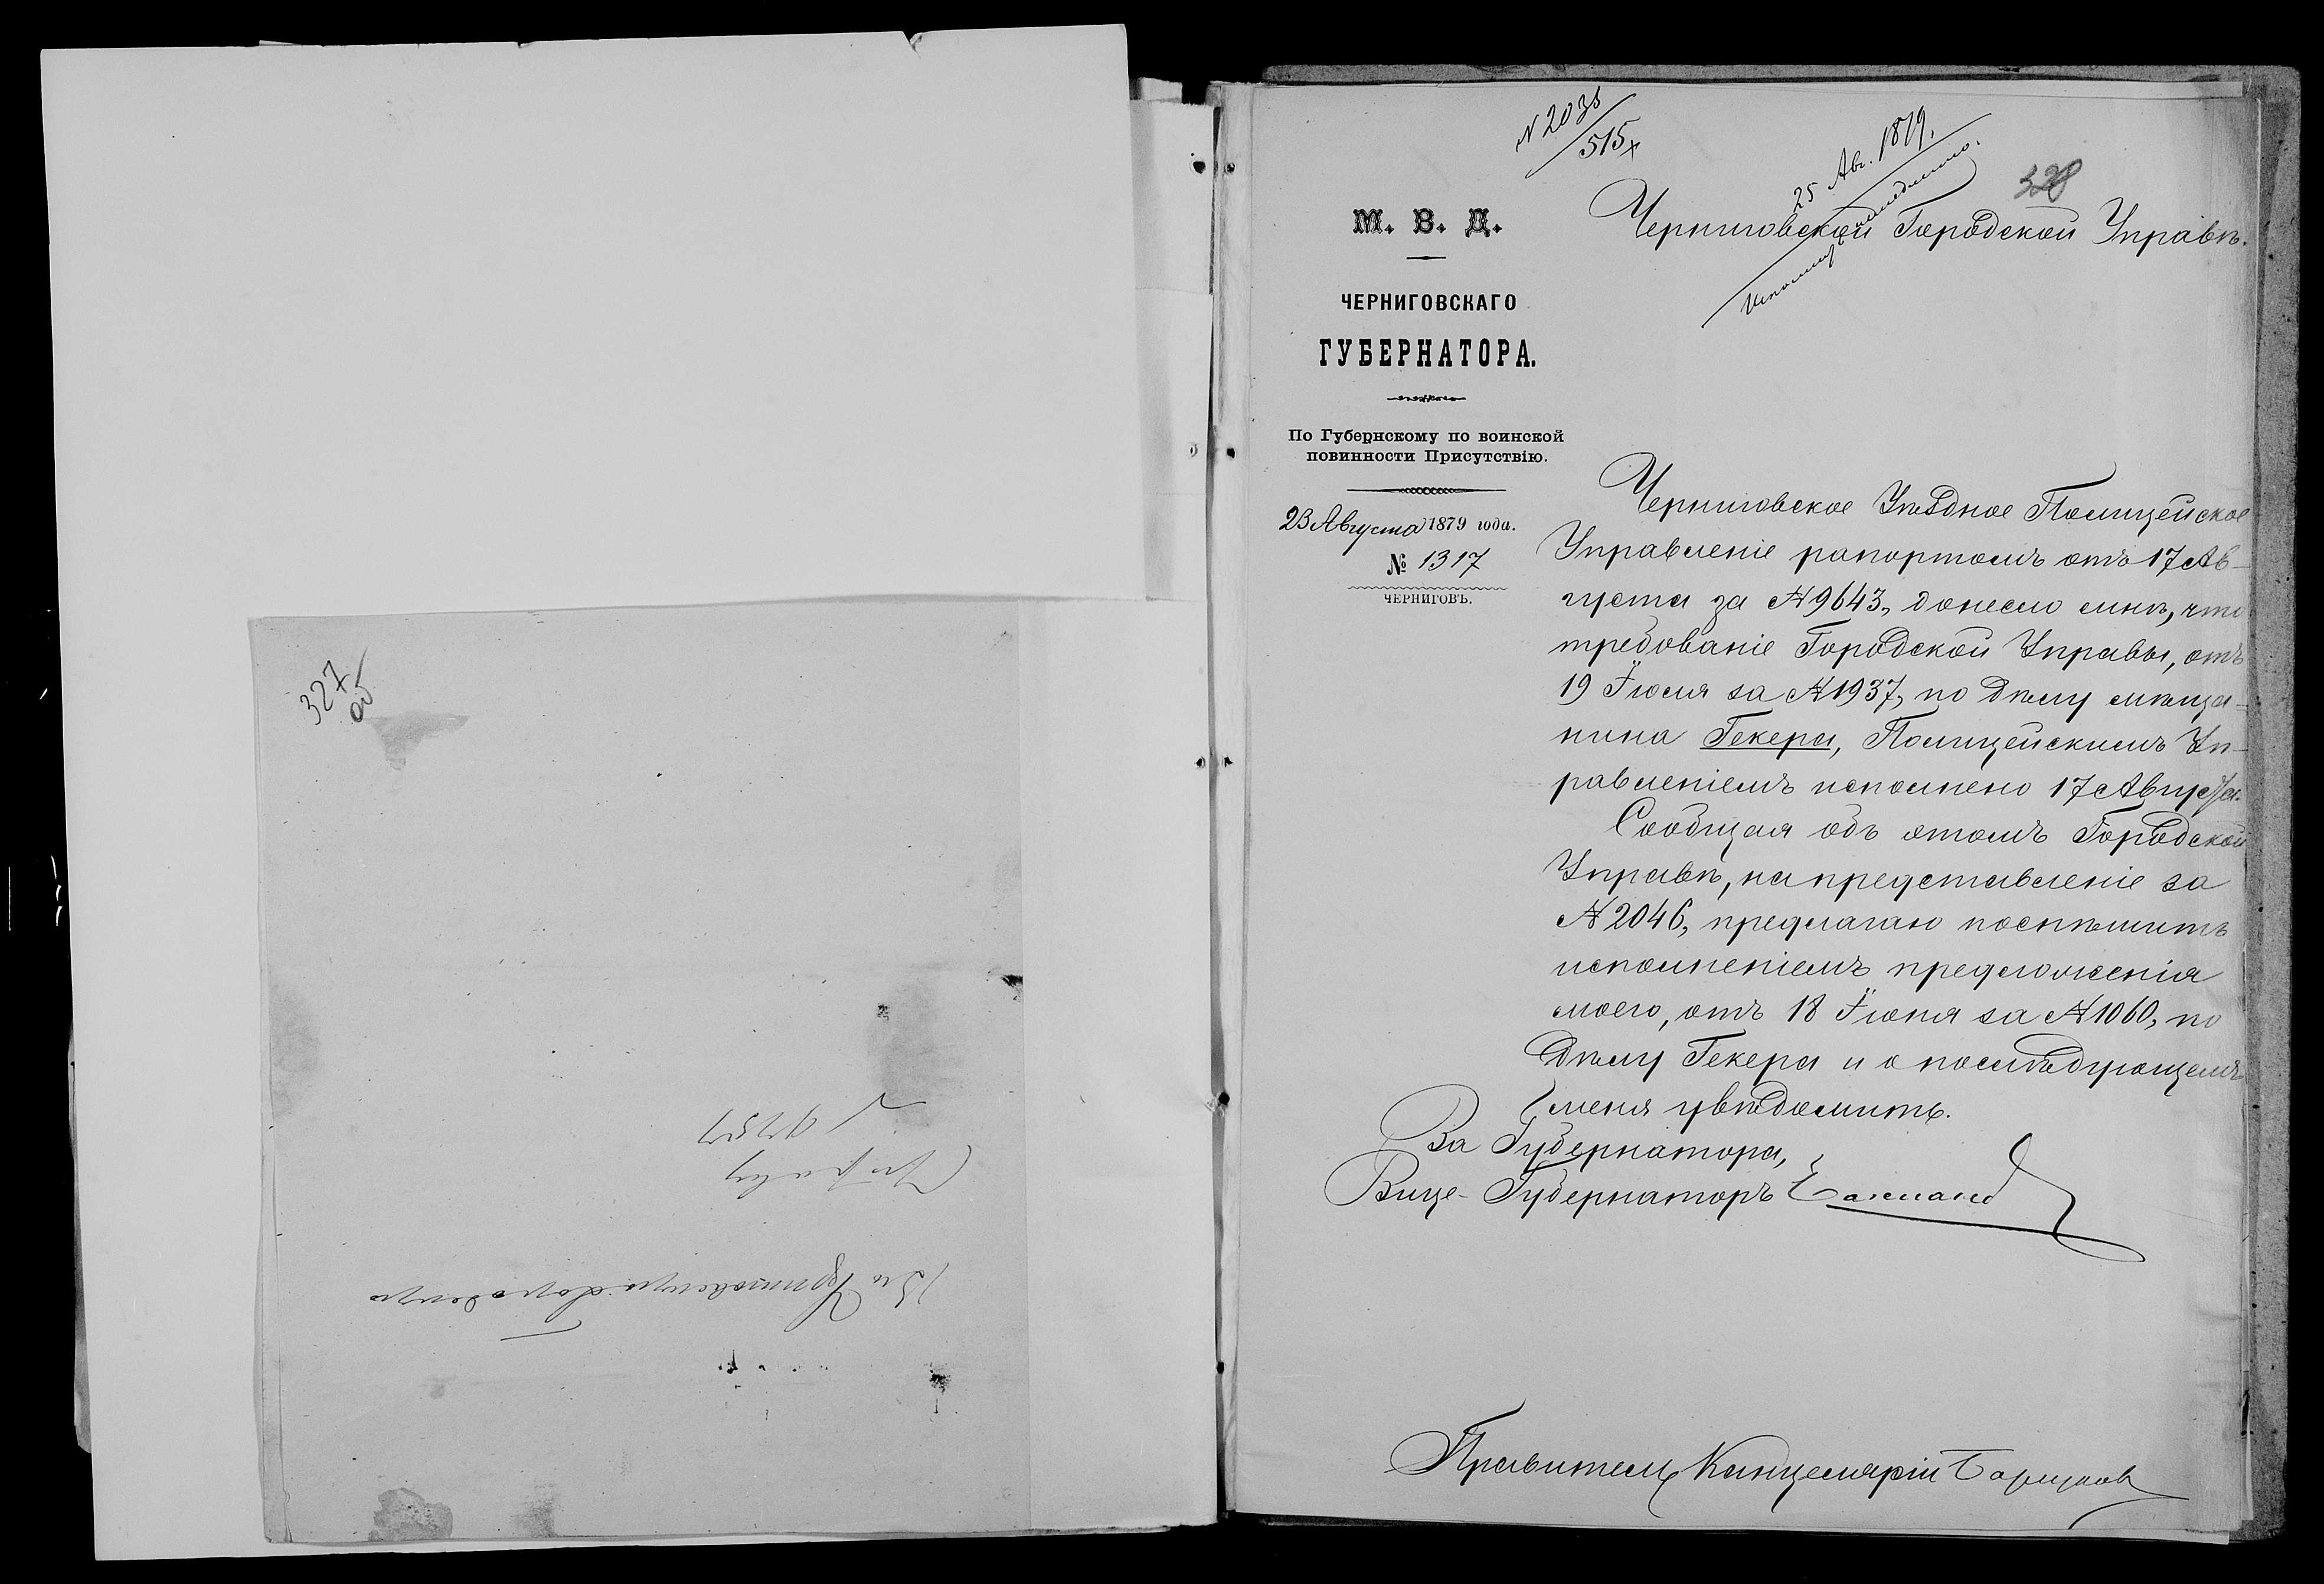 327
об
Въ Черниговскую Городскую
Управу
№ 9257
N 2035
515
25 Авг. 1879.
328
М. В. Д.
ЧЕРНИГОВСКАГО
ГУБЕРНАТОРА.
По Губернскому по воинской
повинности Присутствію.
23 Августа 1879 года.
№ 1317
ЧЕРНИГОВЪ.
Черниговской Городской Управѣ.
Черниговское Уѣздное Полицейское
Управленіе рапортомъ отъ 17 Ав-
густа за № 9643, донесло мнѣ, что
требованіе Городской Управы, отъ
19 Іюля за № 1937, по дѣлу мѣща-
нина Гекера, Полицейскимъ Уп-
равленіемъ исполнено 17 Августа.
Сообщая объ этомъ Городской
Управѣ, на представленіе за
№ 2046, предлагаю поспѣшить
исполненіемъ предложенія
моего, отъ 18 Іюня за № 1060, по
дѣлу Гекера и о послѣдующемъ
меня увѣдомить.
За Губернатора,
Вице-Губернаторъ
Правитель Канцеляріи